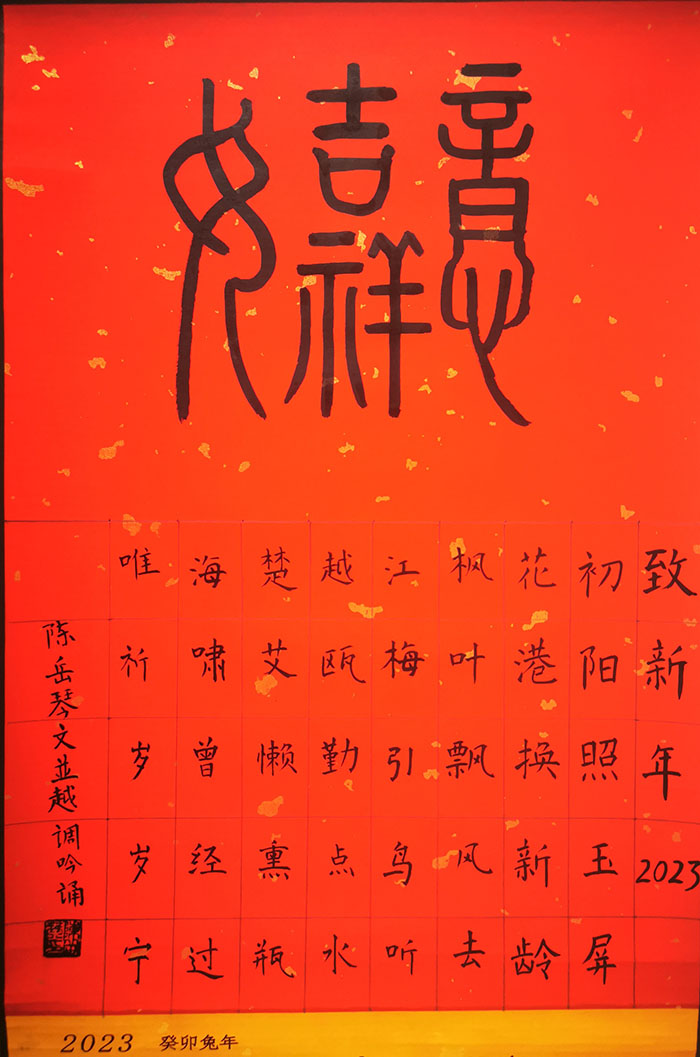 吉祥如意
致新年2023
初阳照玉屏
花港换新龄
枫叶飘风去
江梅引鸟听
越瓯勤点水
楚艾懒熏瓶
海啸曾经过
唯祈岁岁宁
陈岳琴文並越调吟诵
2023 癸卯兔年